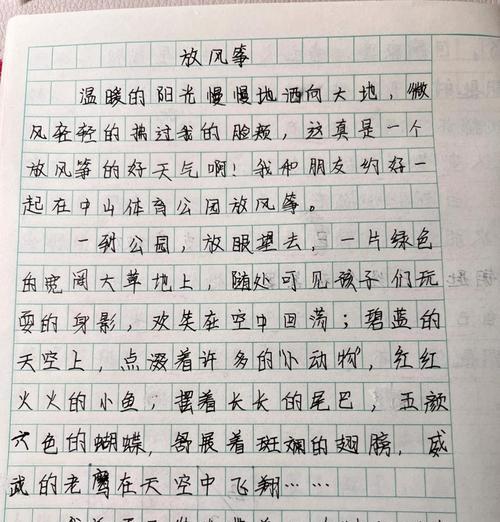 放风筝
温暖的阳光慢慢地洒向大地，微
风轻轻的拂过我的脸颊，这真是一个
放风筝的好天气啊！我和朋友约好一
起在中山体育公园放风筝。
一到公园，放眼望去，一片绿色
的宽阔大草地上，随处可见孩子们玩
耍的身影，欢笑在空中回荡；碧蓝的
天空上，点缀着许多的“小动物”，红红
火火的小鱼，摆着长长的尾巴，五颜
六色的蝴蝶，舒展着斑斓的翅膀，威
武的老鹰在天空中飞翔……